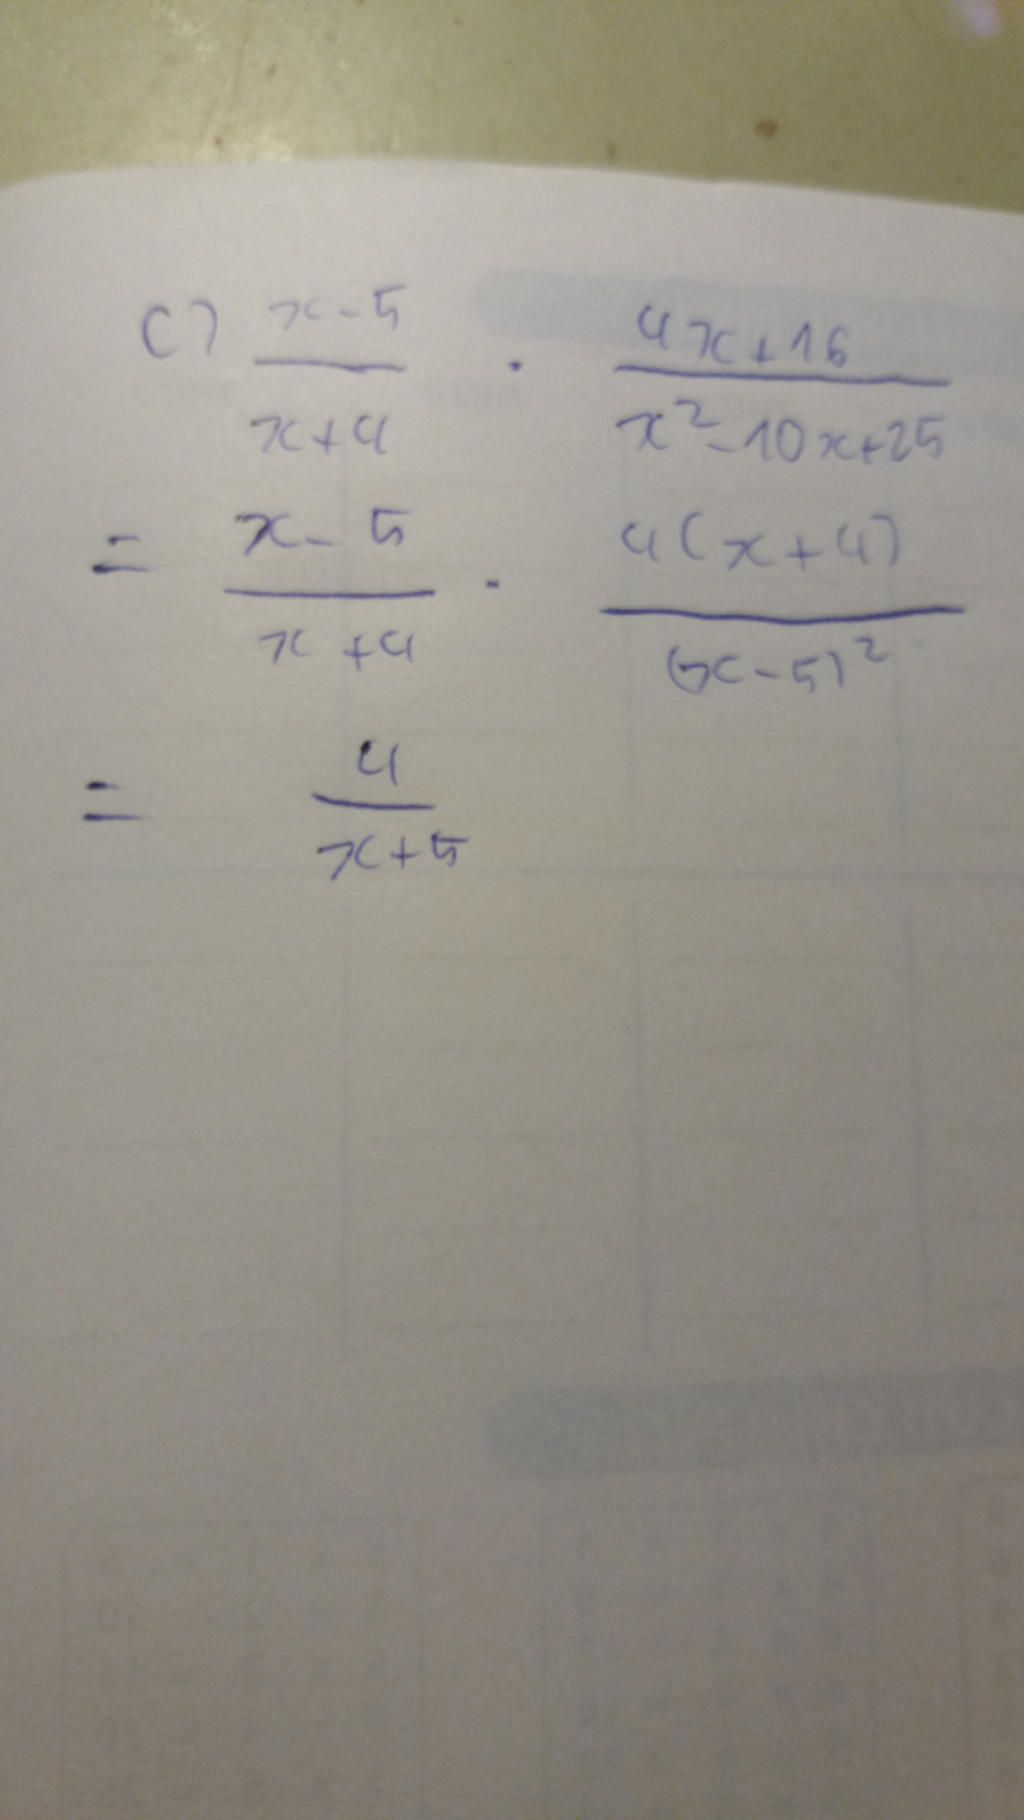 c) x-5 / x+4 · 4x+16 / x²-10x+25
= x-5 / x+4 · 4(x+4) / (x-5)²
= 4 / x+5